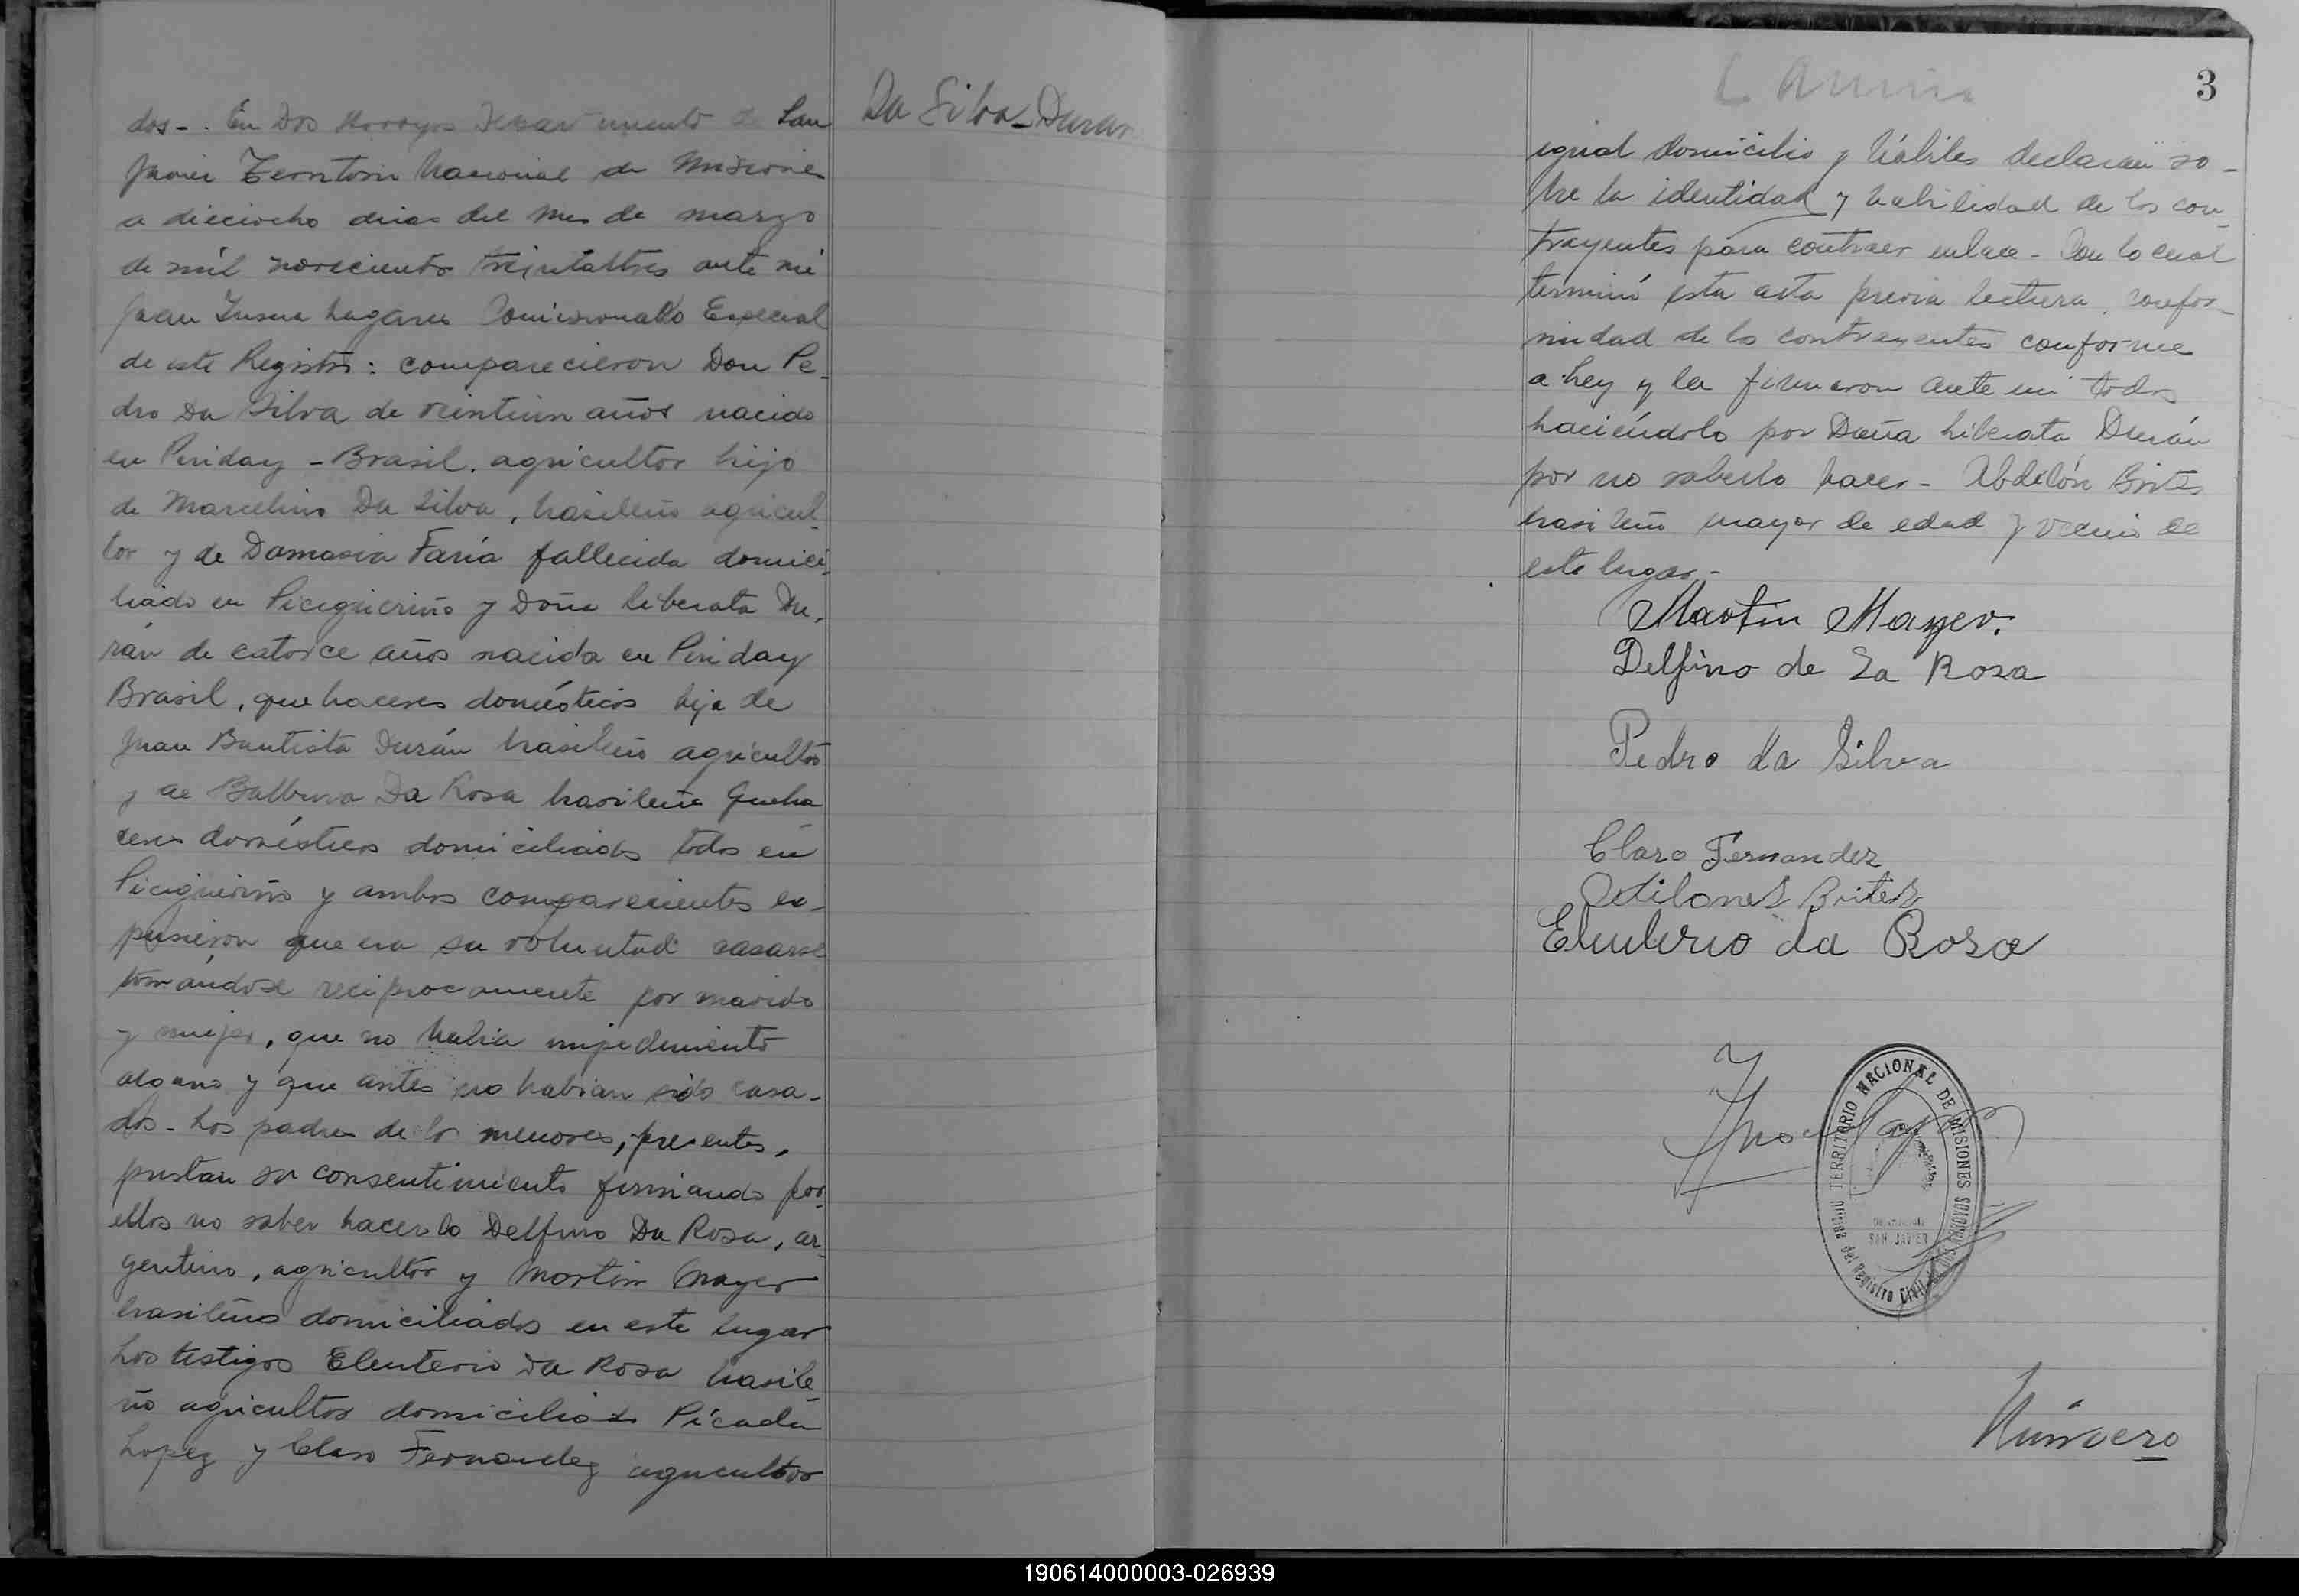 dos-. En Dos Arroyos Departamento de San
Javier Territorio Nacional de Misiones
a dieciocho dias del mes de marzo
de mil novecientos treintaitres ante mi
Juan Lagares Comisionado Especial
de este Registro: comparecieron Don Pe-
dro Da Silva de veintiun años nacido
en Periday - Brasil, agricultor hijo
de Marcelino Da Silva, brasileño agricul-
tor y de Damasia Faria fallecida domici-
liado en y Doña Liberata Du-
rán de catorce años nacida en Periday
Brasil, quehaceres domésticos hija de
Juan Bautista Durán brasileño agricultor
y de Balbina Da Rosa brasileña queha
ceres domésticos domiciliados todos en
y ambos comparecientes ex-
pusieron que era su voluntad casarse
tomándose reciprocamente por marido
y mujer, que no habia impedimento
alguno y que antes no habian sido casa-
dos - Los padres de los menores, presentes,
prestan su consentimiento firmando por
ellos no saber hacerlo Delfino Da Rosa, ar-
gentino, agricultor y Martin Mayer
brasileño domiciliados en este lugar
Los testigos Eleuterio Da Rosa brasile-
ño agricultor domiciliado Picada
Lopez y Claro Fernandez agricultor
Da Silva - Duran
3
igual domicilio y hábiles declaran so-
bre la identidad y habilidad de los con-
trayentes para contraer enlace - Con lo cual
terminó esta acta previa lectura, confor-
midad de los contrayentes conforme
a Ley y la firmaron ante mi todos
haciéndolo por Doña Liberata Durán
por no saberlo hacer - Abdilón Brites
brasileño mayor de edad y vecino de
este lugar -
Martin Mayer.
Delfino de La Rosa
Pedro da Silva
Claro Fernandez
Odilones Brites
Eleuterio da Rosa
TERRITORIO NACIONAL DE MISIONES
Oficina del Registro Civil
SAN JAVIER
190614000003-026939